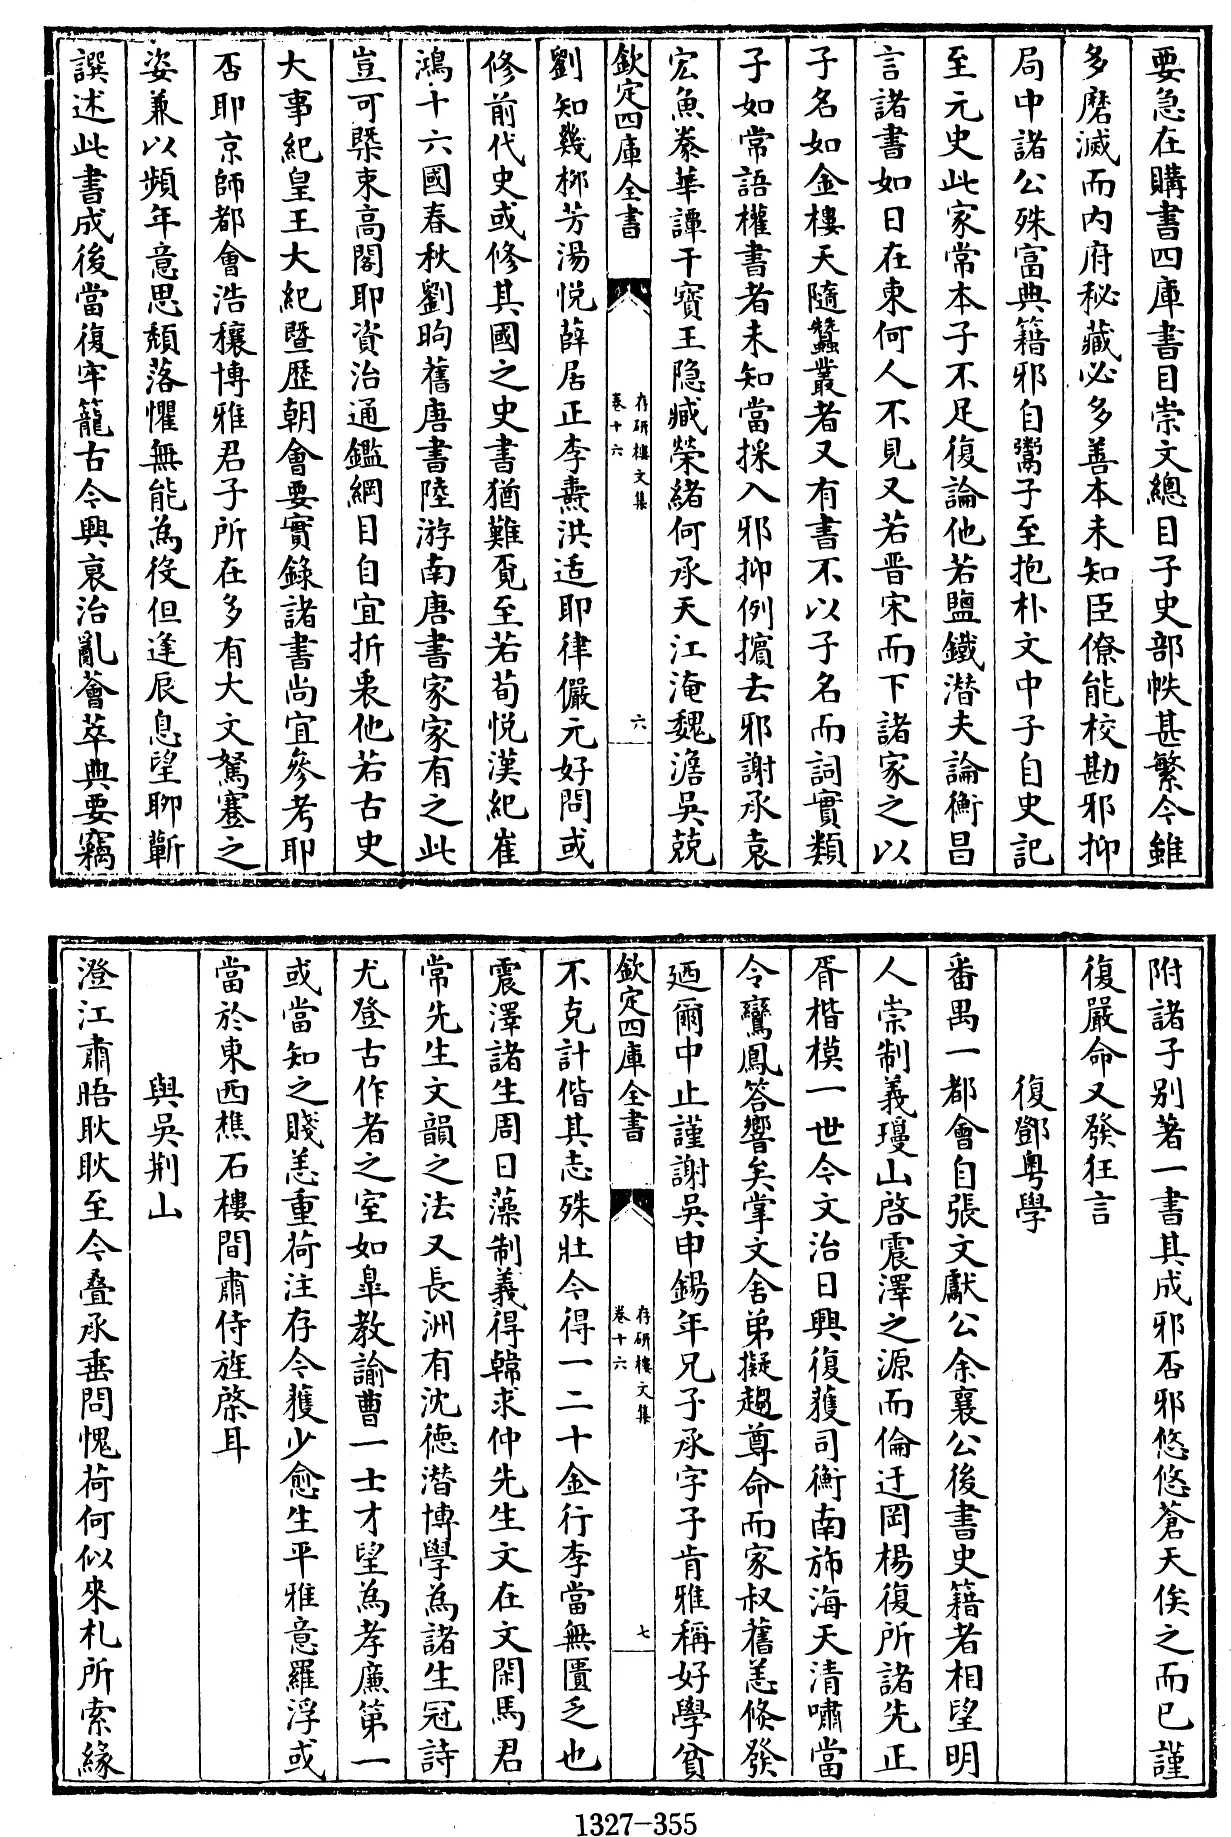 要急在購書四庫書目崇文總目子史部帙甚繁今雖
多磨滅而內府秘藏必多善本未知臣僚能校勘邪抑
局中諸公殊富典籍邪自鬻子至抱朴文中子自史記
至元史此家常本子不足復論他若鹽鐵潛夫論衡昌
言諸書如日在東何人不見又若晋宋而下諸家之以
子名如金樓天隨蠶叢者又有書不以子名而詞實類
子如常語權書者未知當採入邪抑例擯去邪謝承袁
宏魚豢華譚干寶王隐臧榮緒何承天江淹魏澹吳兢
欽定四庫全書
存研樓文集
卷十六
六
劉知幾栁芳湯悅薛居正李燾洪适耶律儼元好問或
修前代史或修其國之史書猶難覔至若荀悅漢紀崔
鴻十六國春秋劉昫舊唐書陸游南唐書家家有之此
豈可槩束高閣耶資治通鑑綱目自宜折衷他若古史
大事紀皇王大紀暨歷朝會要實錄諸書尚宜參考耶
否耶京師都會浩穰博雅君子所在多有大文駑蹇之
姿兼以頻年意思頹落懼無能為役但逢辰息望聊蘄
譔述此書成後當復牢籠古今興衰治亂薈萃典要竊
附諸子别著一書其成邪否邪悠悠蒼天俟之而已謹
復嚴命又發狂言
復鄧粤學
番禺一都會自張文獻公余襄公後書史籍者相望明
人崇制義瓊山啓震澤之源而倫迂岡楊復所諸先正
胥楷模一世今文治日興復獲司衡南斾海天清嘯當
令鸞鳳答響矣掌文舍弟擬趨尊命而家叔舊恙倐發
廼爾中止謹謝吳申錫年兄子承字子肯雅稱好學貧
欽定四庫全書
存研樓文集
卷十六
七
不克計偕其志殊壯今得一二十金行李當無匱乏也
震澤諸生周日藻制義得韓求仲先生文在文閑馬君
常先生文韻之法又長洲有沈德潛博學為諸生冠詩
尤登古作者之室如臯教諭曹一士才望為孝廉第一
或當知之賤恙重荷注存今獲少愈生平雅意羅浮或
當於東西樵石樓間肅侍旌棨耳
與吳荆山
澄江肅晤耿耿至今叠承垂問愧荷何似來札所索緣
1327-355